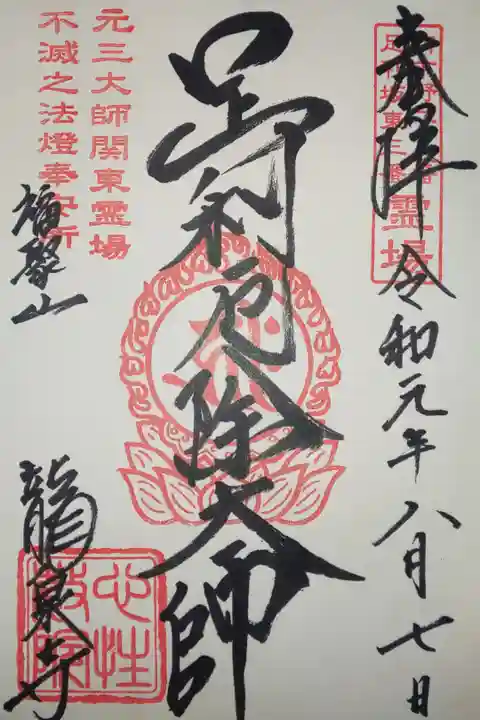 奉拝 令和元年八月七日
足利厄除大師
元三大師関東霊場
不滅之法燈奉安所
福聚山
龍泉寺